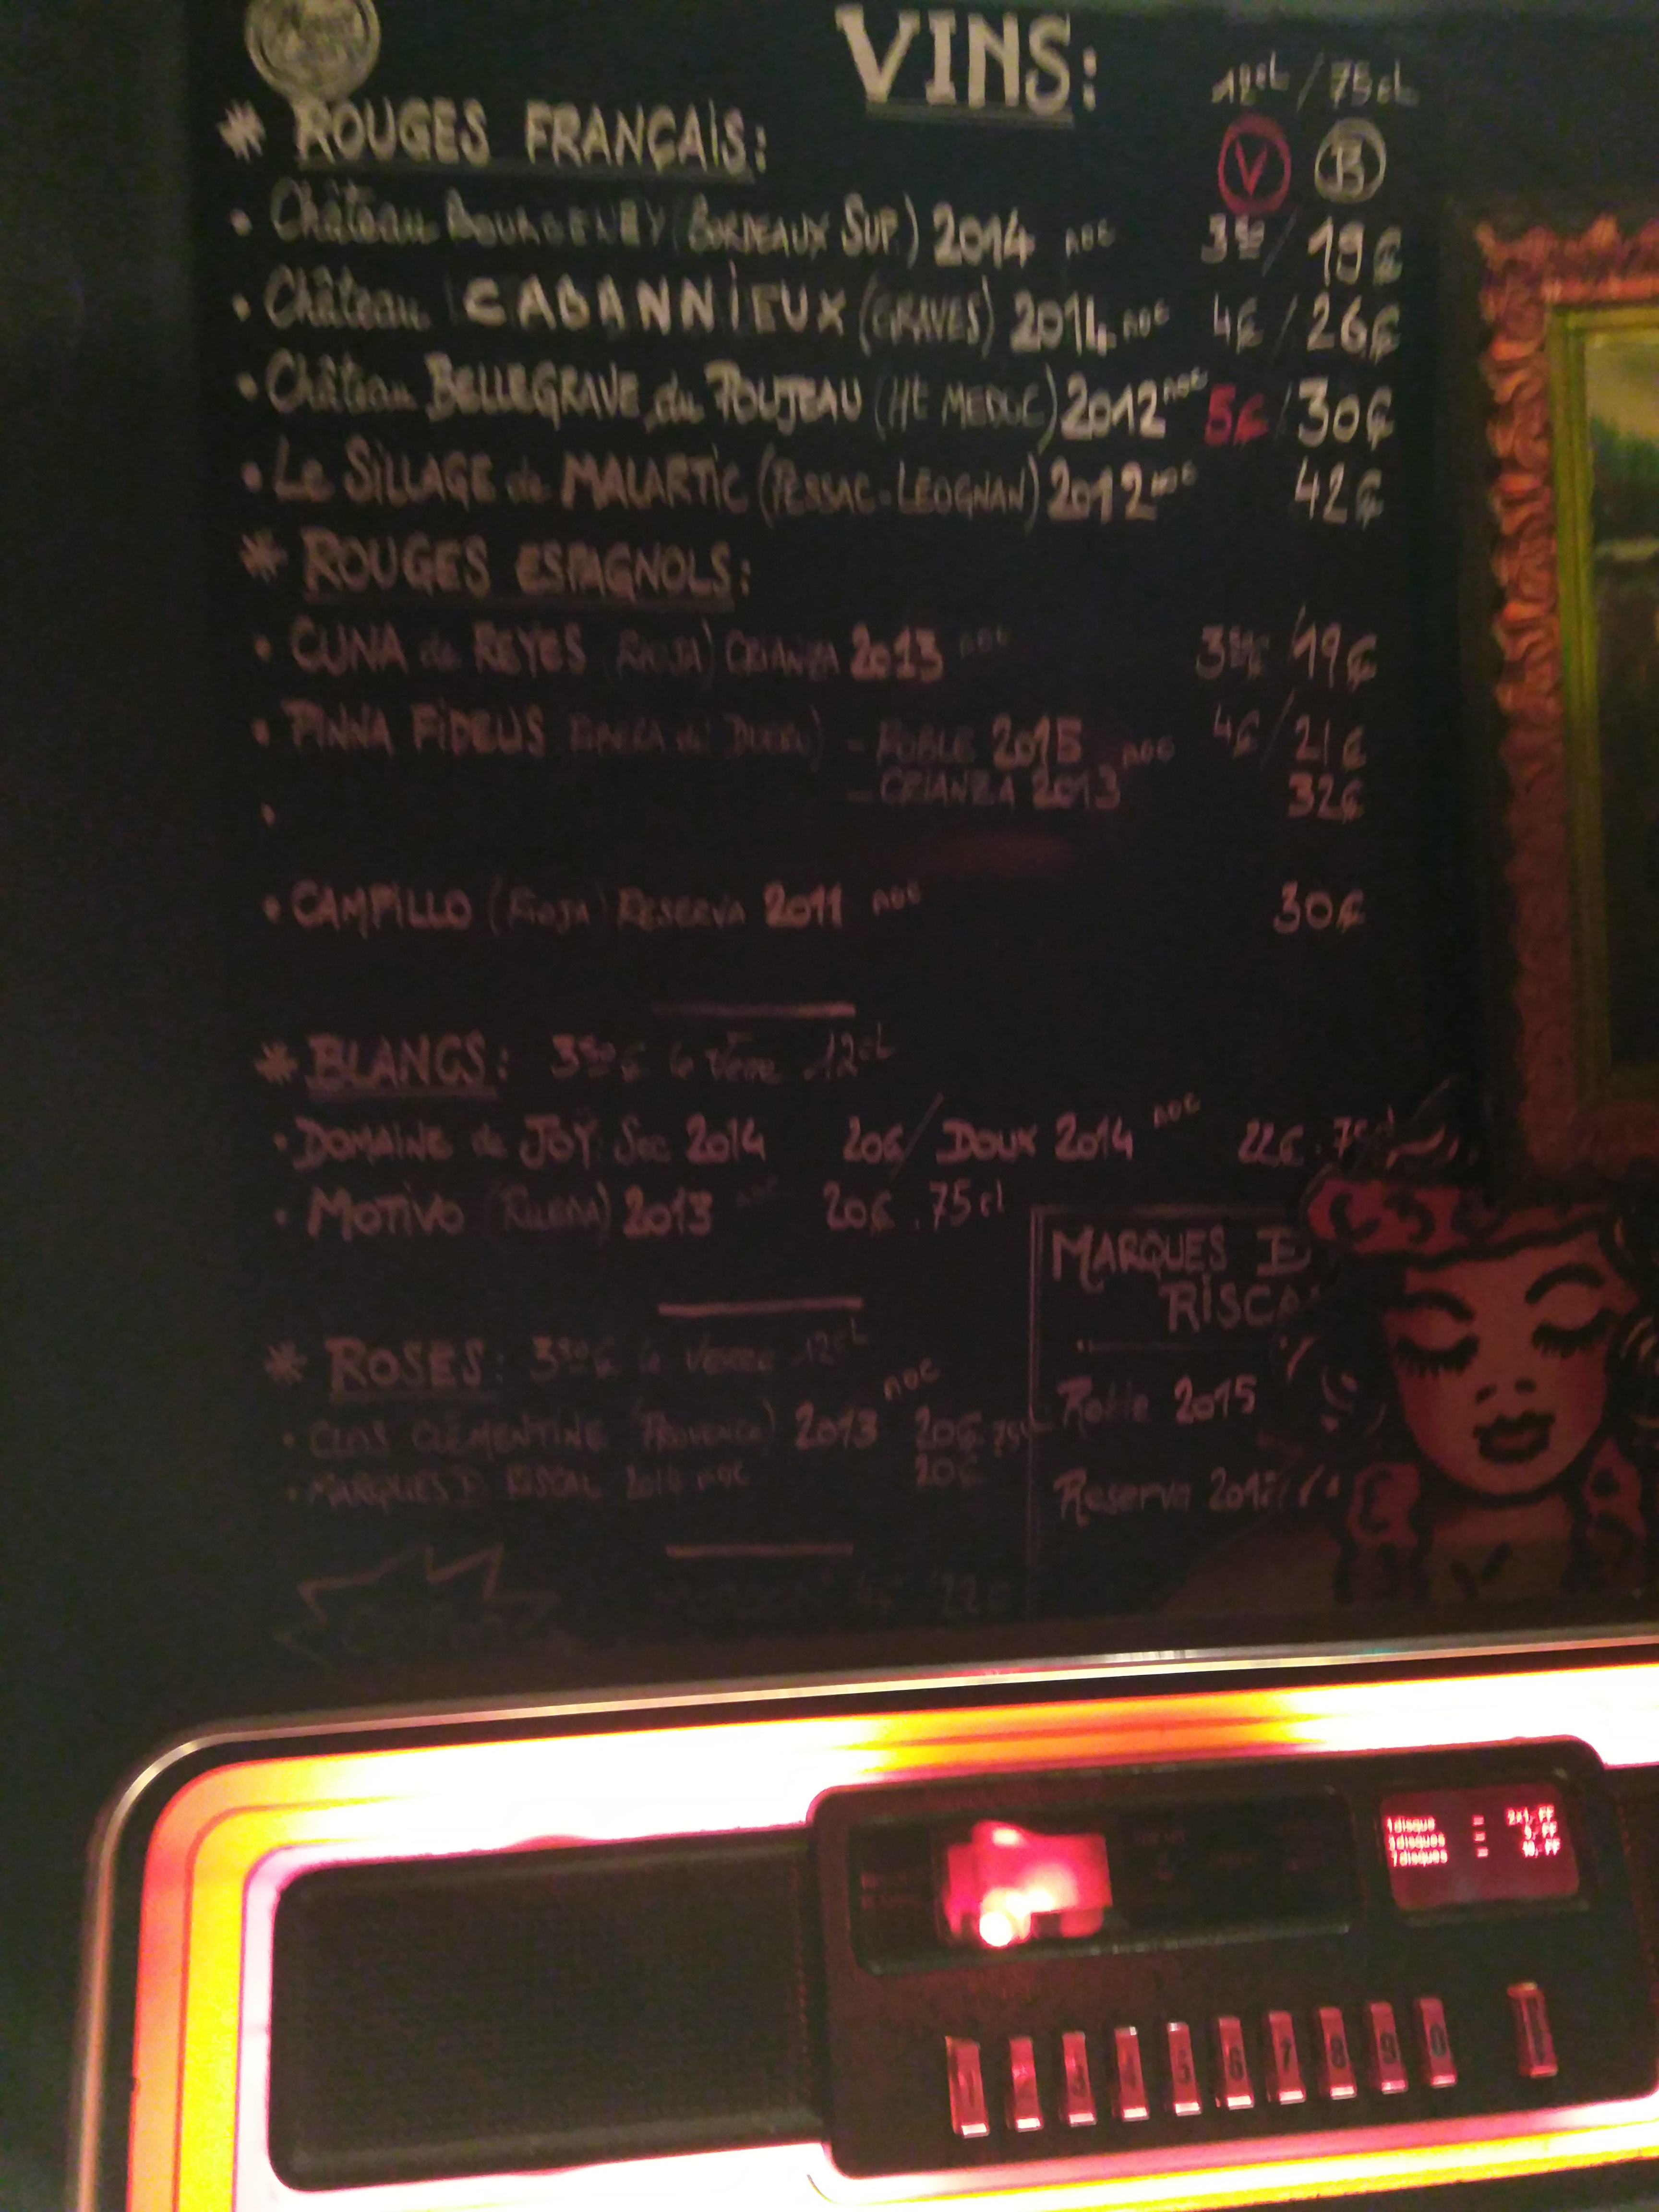 VINS:
12cL / 75cL
* ROUGES FRANÇAIS:
V B
• Château (BORDEAUX SUP.) 2014 AOC 3,50 / 19€
• Château CABANNIEUX (GRAVES) 2014 AOC 4€ / 26€
• Château BELLEGRAVE du POUJEAU (Ht MEDOC) 2012 AOC 5€ / 30€
• Le SILLAGE de MALARTIC (PESSAC-LÉOGNAN) 2012 AOC 42€
* ROUGES ESPAGNOLS:
• CUNA de REYES (RIOJA) CRIANZA 2013 AOC 3,50€ / 19€
• PINNA FIDELIS (RIBERA del DUERO) - ROBLE 2015 AOC 4€ / 21€
- CRIANZA 2013 32€
•
• CAMPILLO (RIOJA) RESERVA 2011 AOC 30€
* BLANCS: 3,50€ le Verre 12cL
• DOMAINE de JOŸ Sec 2014 20€ / DOUX 2014 AOC 22€. 75cl
• MOTIVO (RUEDA) 2013 AOC 20€. 75cl
* ROSES: 3,50€ le VERRE 12cL
• CLOS CLÉMENTINE (PROVENCE) 2013 AOC 20€ 75cl
• MARQUES D RISCAL 2014 AOC 20€
4€ / 22€
MARQUES D
RISCA
Roble 2015
Reserva 2012
1 disque = 2x1,-FF
3 disques = 5,-FF
7 disques = 10,-FF
1 2 3 4 5 6 7 8 9 0